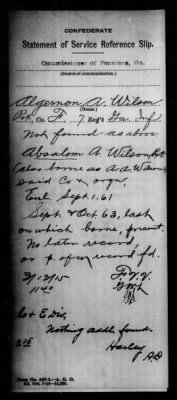 CONFEDERATE
Statement of Service Reference Slip.
Commissioner of Pensions, Ga.
(Source of communication.)
Algernon A. Wilson
(Name.)
Pvt. Co. F. 7 Reg't Ga Inf
Not found as above
Absalom A. Wilson, Pvt
(also borne as A. A. Wilson)
said Co & orgn,
Enl Sept. 1. 61
Sept & Oct 63, last
on which borne, present.
No later record,
or p. of w. record fd.
3/13/15
1140
Co & E. Div,
Nothing addl found.
215 Harley
A.D
Form No. 417-1.—A. G. O.